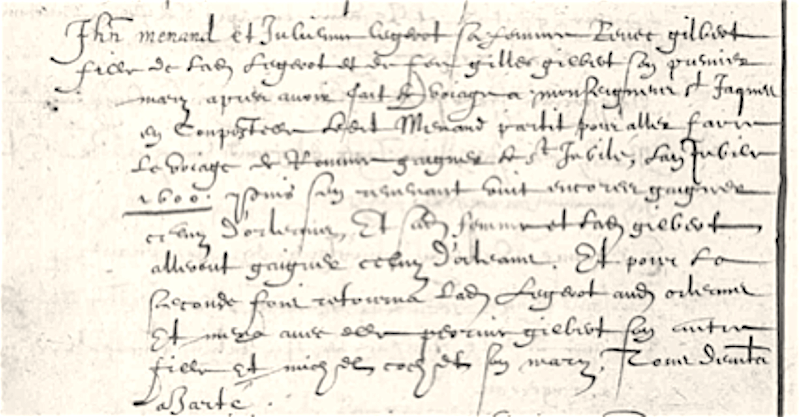 Jhn menand et Julienne legerot sa femme Renee gilbert
fille de lad legerot et de feu gilles gilbert son premier
mary apres avoir fait le voiage a monseigneur st Jaques
en Compostelle ledit Menand partit pour aller faire
le voiage de Romme gaigner le st Jubile, lan Jubile
1600. puis sen revenant vint encores gaigner
celuy d'orleans, Et sad femme et lad gilbert
allerent gaigner celuy d'orleans. Et pour la
seconde fois retourna lad legerot aud orleans
Et mena avec elle perrine gilbert son autre
fille et michel son mary. Tous